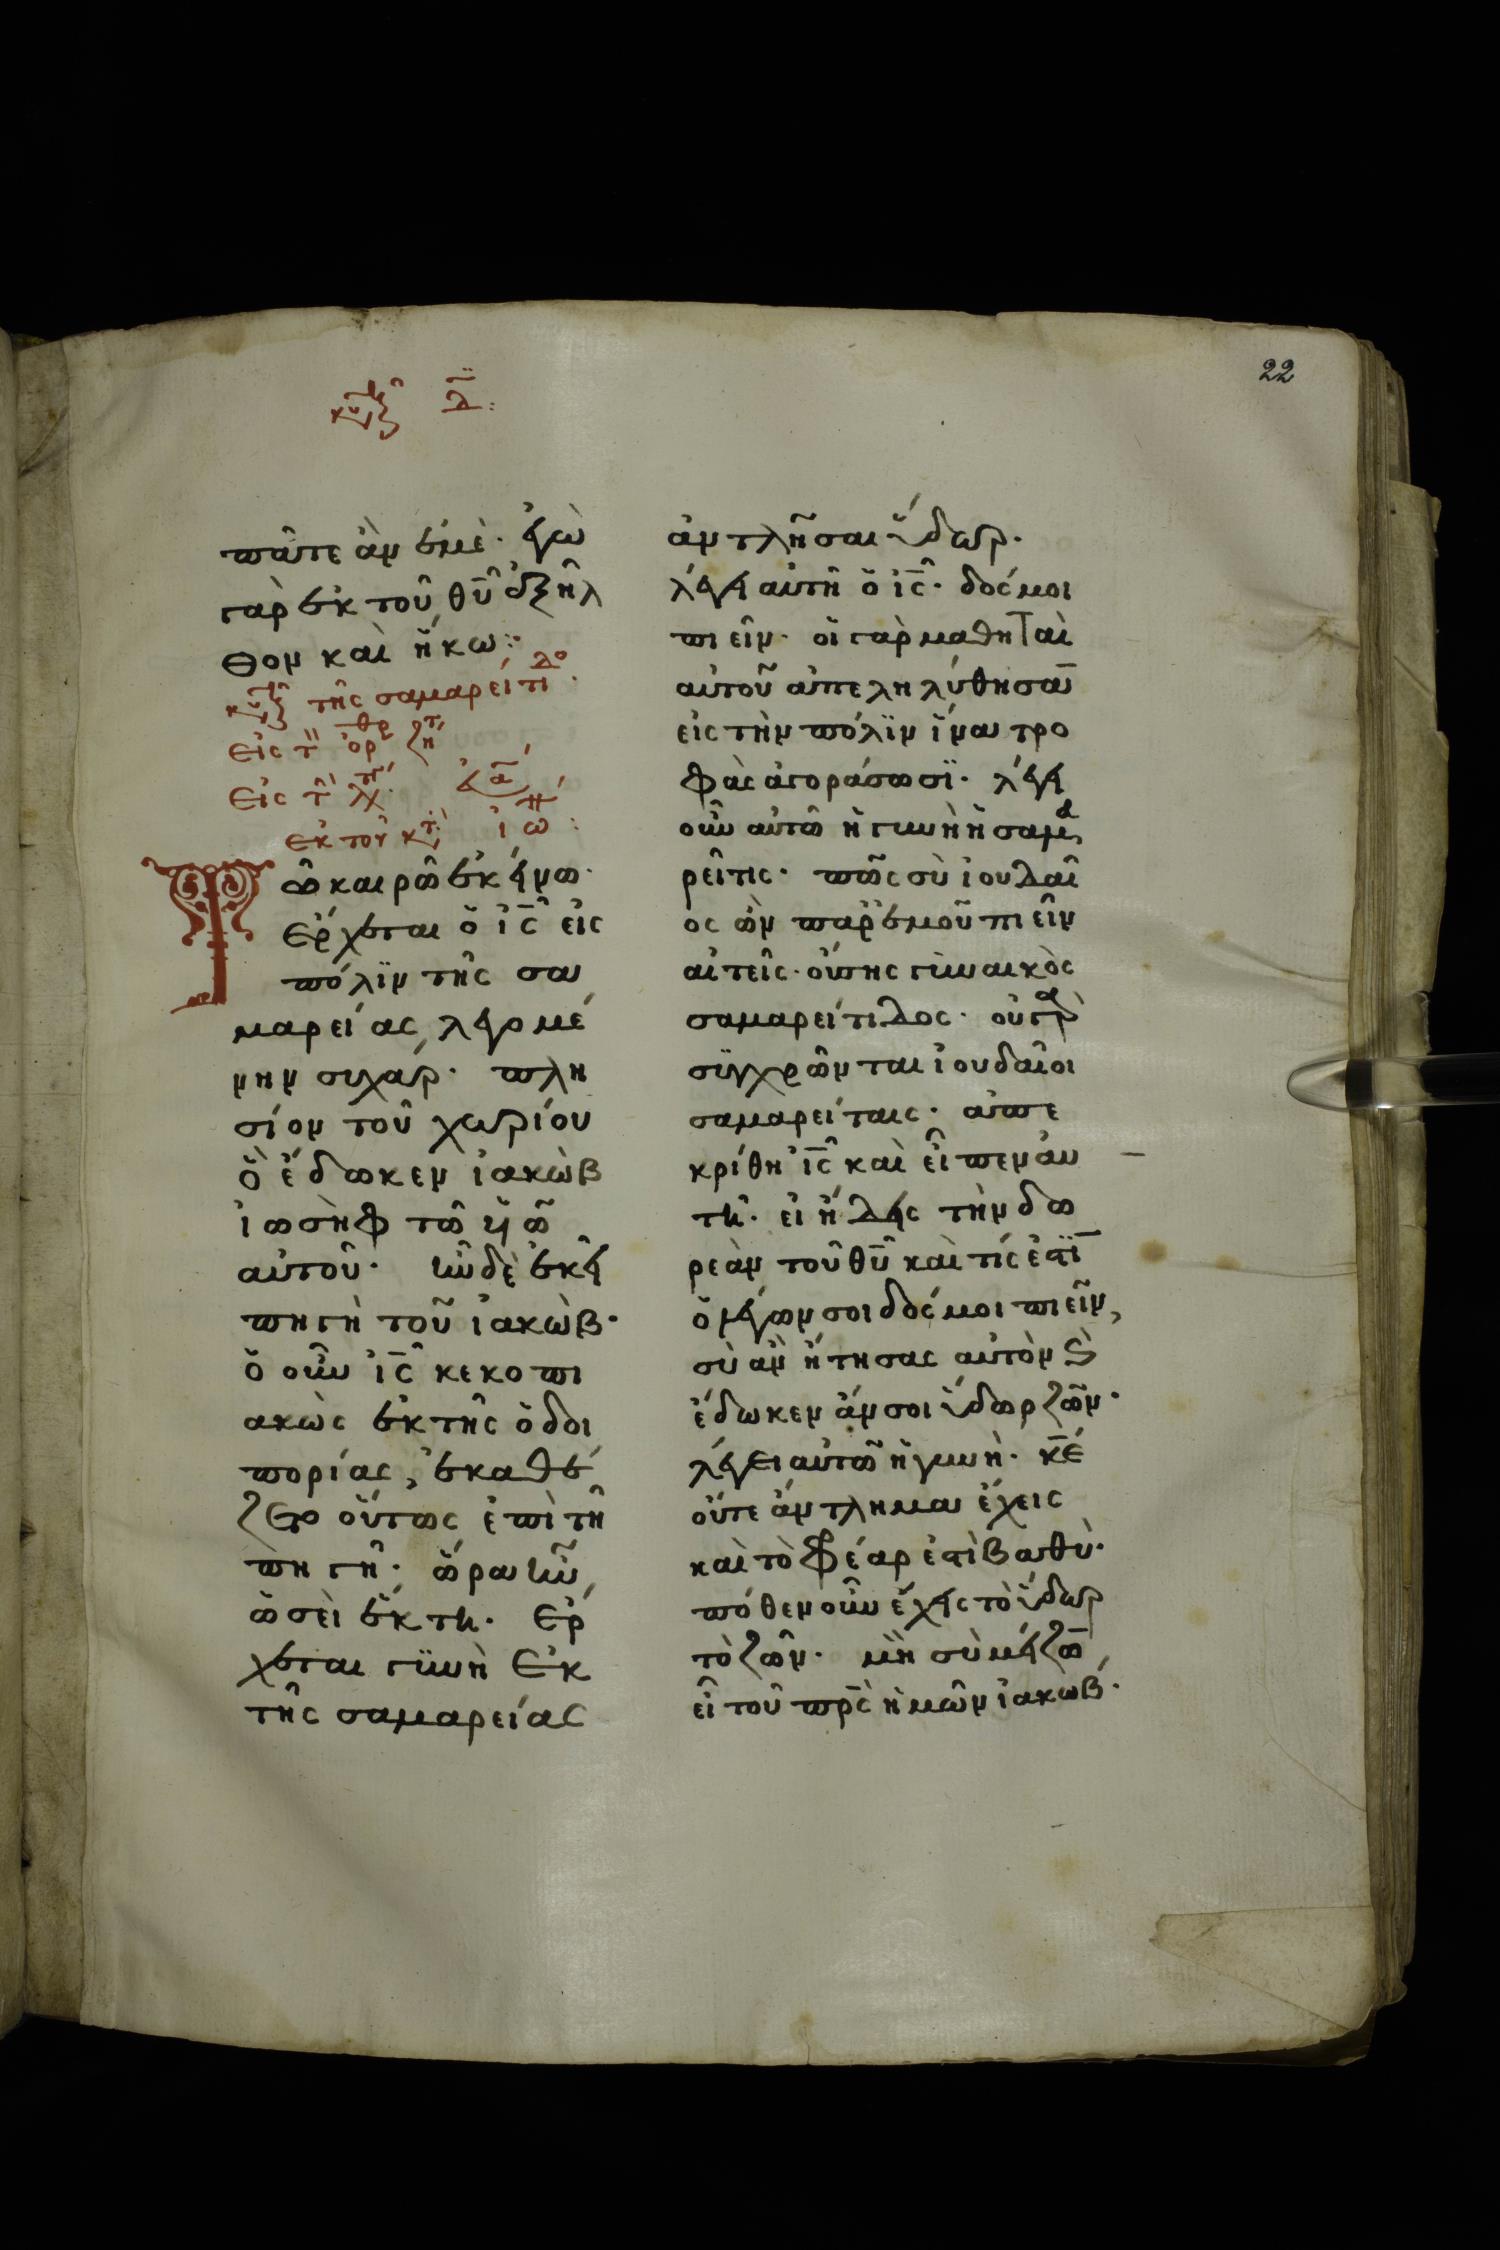 22
κυριακῆ δ̄:
πᾶτε ἂν ἐμὲ· ἐγὼ
γὰρ ἐκ τοῦ θῦ ἐξῆλ
θον καὶ ἥκω:·
τῆς σαμαρείτιδο·
Εἰς τ ὀρθρ
Εἰς τ λ
ἐκ τοῦ κτ ἰω:
Τῶ καιρῶ ἐκείνω·
Ἔρχεται ὁ ἰς εἰς
πόλϊν τῆς σα
μαρείας, λεγομέ
νην συχάρ· πλη
σίον τοῦ χωρίου
ὃ ἔδωκεν ἰακὼβ
ἰωσὴφ τῶ υἱῶ
αὐτοῦ· ἦν δὲ ἐκεῖ
πηγὴ τοῦ ἰακὼβ·
ὁ οὖν ἰς κεκοπι
ακὼς ἐκ τῆς ὁδοι
πορίας, ἐκαθέ
ζετο οὕτως ἐπὶ τῆ
πηγῆ· ὥρα ἦν,
ὡσεὶ ἕκτη· Ἔρ
χεται γϋνὴ Ἐκ
τῆς σαμαρείας
ἀντλῆσαι ὕδωρ·
λέγει αὐτῆ ὁ ἰς· δός μοι
πιεῖν· οἱ γὰρ μαθηταὶ
αὐτοῦ ἀπεληλύθησα̅
εἰς τὴν πόλϊν ἵνα τρο
φὰς ἀγοράσωσϊ· λέγει
οὖν αὐτῶ ἡ γυνὴ ἡ σαμα
ρεῖτις· πῶς σὺ ἰουδαῖ
ος ὢν παρ' ἐμοῦ πιεῖν
αἰτεῖς· οὔσης γϋναικὸς
σαμαρείτιδος· οὐ γὰρ
σϋγχρῶνται ἰουδαῖοι
σαμαρείταις· ἀπε
κρίθη ἰς καὶ εἶπεν αὐ
τῆ· εἰ ἤδεις τὴν δω
ρεὰν τοῦ θῦ καὶ τίς ἐστϊ̅
ὁ λέγων σοι δός μοι πιεῖν,
σὺ ἂν ἤτησας αὐτὸν καὶ
ἔδωκεν ἄν σοι ὕδωρ ζῶν·
λέγει αὐτῶ ἡ γυνὴ· κε
οὔτε ἄντλημα ἔχεις
καὶ τὸ φρέαρ ἐστὶ βαθὺ·
πόθεν οὖν ἔχεις τὸ ὕδωρ
τὸ ζῶν· μὴ σὺ μείζω̅
εἶ τοῦ πρς ἡμῶν ἰακωβ·